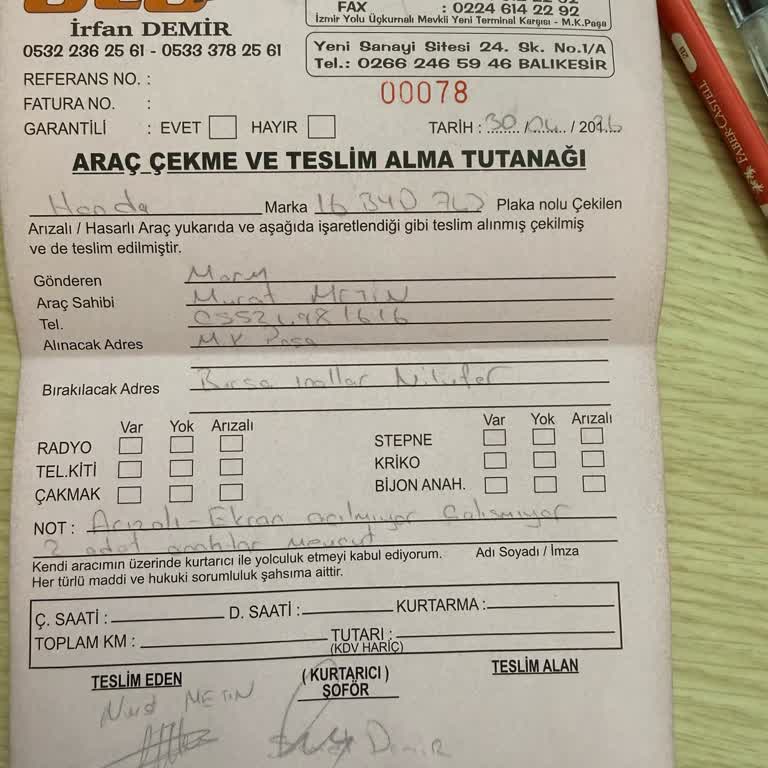 İrfan DEMİR
0532 236 25 61 - 0533 378 25 61
FAX : 0224 614 22 92
İzmir Yolu Üçkurnalı Mevkii Yeni Terminal Karşısı - M.K.Paşa
Yeni Sanayi Sitesi 24. Sk. No.1/A
Tel.: 0266 246 59 46 BALIKESİR
REFERANS NO. :
00078
FATURA NO. :
GARANTİLİ : EVET HAYIR TARİH : 30/04/2026
ARAÇ ÇEKME VE TESLİM ALMA TUTANAĞI
Honda Marka 16 Plaka nolu Çekilen
Arızalı / Hasarlı Araç yukarıda ve aşağıda işaretlendiği gibi teslim alınmış çekilmiş
ve de teslim edilmiştir.
Gönderen
Araç Sahibi Murat METİN
Tel.
Alınacak Adres M.K Paşa
Bırakılacak Adres Bursa Nilüfer
Var Yok Arızalı Var Yok Arızalı
RADYO STEPNE
TEL.KİTİ KRİKO
ÇAKMAK BİJON ANAH.
NOT : Arızalı - Ekran açılmıyor Çalışmıyor
2 adet anahtar mevcut
Kendi aracımın üzerinde kurtarıcı ile yolculuk etmeyi kabul ediyorum. Adı Soyadı / İmza
Her türlü maddi ve hukuki sorumluluk şahsıma aittir.
Ç. SAATİ : D. SAATİ : KURTARMA :
TOPLAM KM : TUTARI :
(KDV HARİÇ)
TESLİM EDEN ( KURTARICI ) TESLİM ALAN
ŞOFÖR
METİN
Demir
FABER-CASTELL
2B